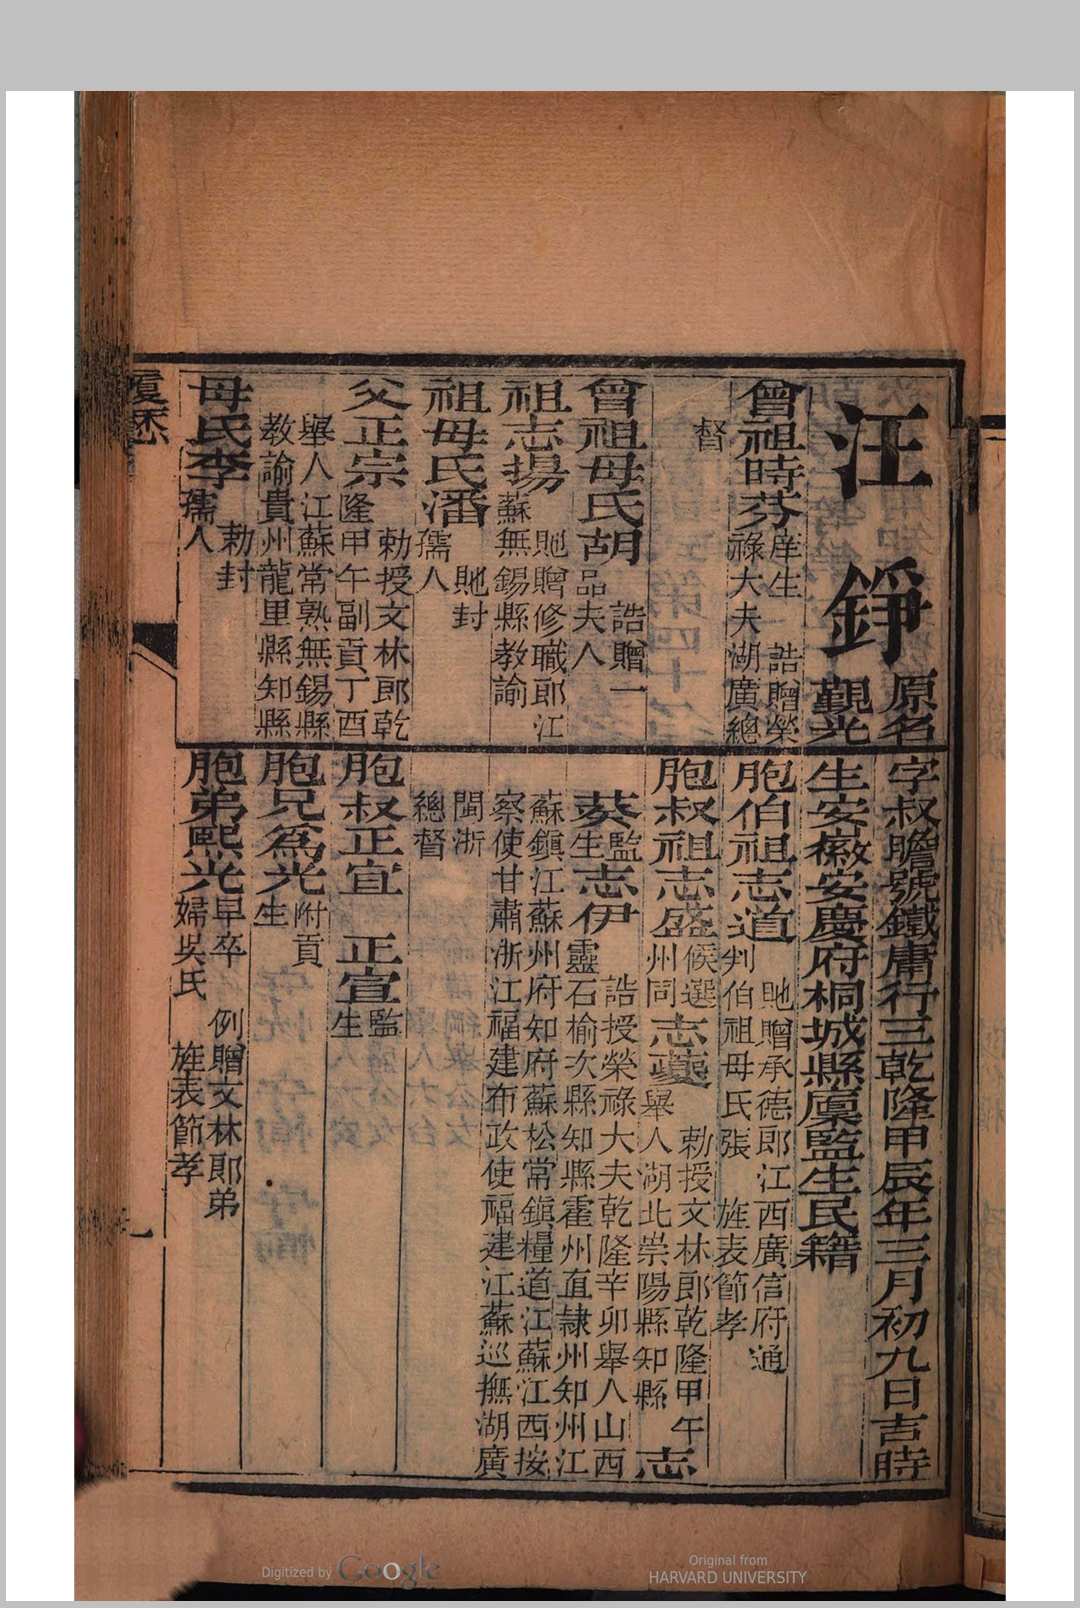 汪　錚　原名
覲光
曾祖時芬　庠生　誥贈榮
祿大夫湖廣總
督
曾祖母氏胡　誥贈一
品夫人
祖志揚　貤贈修職郎江
蘇無錫縣教諭
祖母氏潘　貤封
孺人
父正宗　勅授文林郎乾
隆甲午副貢丁酉
舉人江蘇常熟無錫縣
教諭貴州龍里縣知縣
母氏李　勅封
孺人
字叔瞻號鐵庸行三乾隆甲辰年三月初九日吉時
生安徽安慶府桐城縣廩監生民籍
胞伯祖志道　貤贈承德郎江西廣信府通
判伯祖母氏張　旌表節孝
胞叔祖志盛　候選
州同　志夔　勅授文林郎乾隆甲午
舉人湖北崇陽縣知縣　志
葵　監
生　志伊　誥授榮祿大夫乾隆辛卯舉人山西
靈石榆次縣知縣霍州直隷州知州江
蘇鎮江蘇州府知府蘇松常鎮糧道江蘇江西按
察使甘肅浙江福建布政使福建江蘇巡撫湖廣
閩浙
總督
胞叔正宣　正宣　監
生
胞兄爲光　附貢
生
胞弟熙光　早卒　例贈文林郎弟
婦吳氏　旌表節孝
履歷
九
Digitized by Google
Original from
HARVARD UNIVERSITY